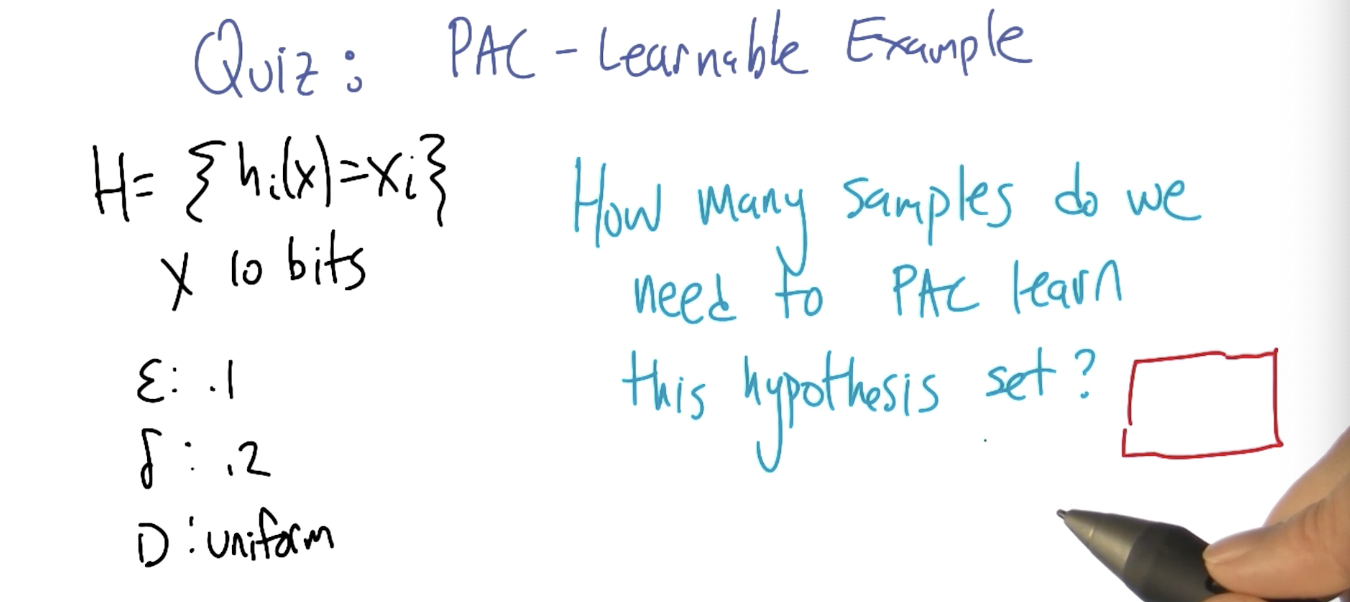 Quiz: PAC-Learnable Example
H= {hᵢ(x)=xᵢ}
X 10 bits
ε: .1
δ: .2
D: uniform
How many samples do we
need to PAC learn
this hypothesis set?